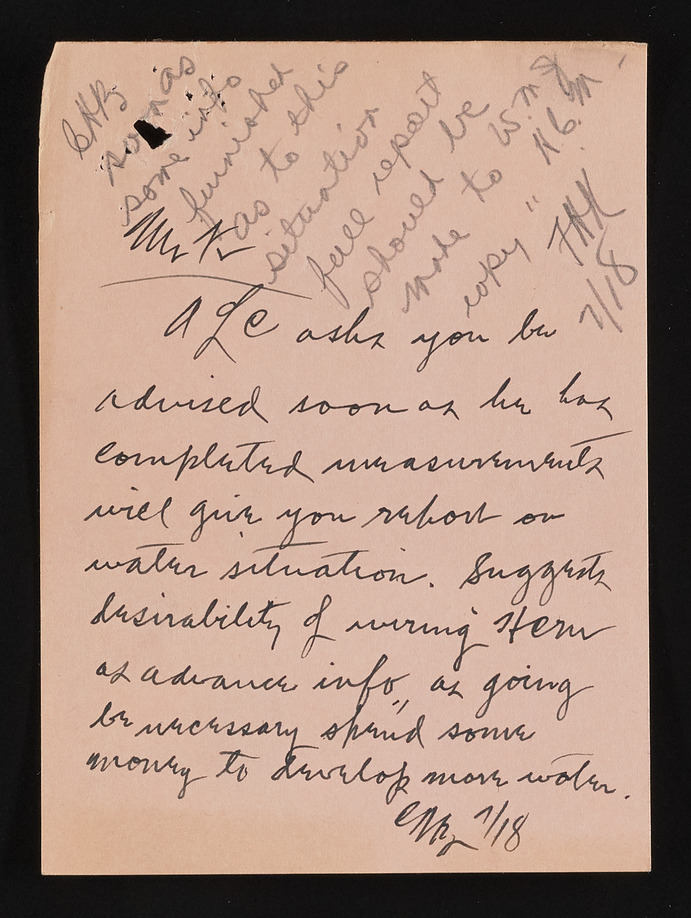 CHB
soon as
some info
furnished
as to this
situation
full report
should be
made to W.M.J.
copy " H.C.M.
FHK
7/18
Mr K
ALC asks you be
advised soon as he has
completed measurements
will give you report on
water situation. Suggests
desirability of wiring HCM
as advance info, as going
be necessary spend some
money to develop more water.
7/18